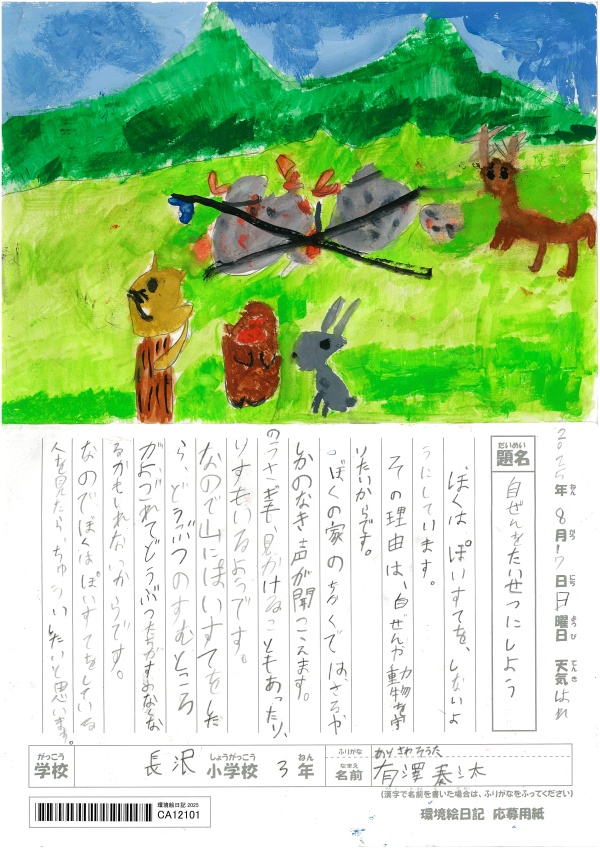 2025年8月17日日曜日 天気はれ
ねん がつ にち ようび てんき
だいめい
題名 自ぜんをたいせつにしよう
ぼくは、ぽいすてを、しないよ
うにしています。
その理由は、自ぜんや動物を守
りたいからです。
ぼくの家のちかくではさるや
しかのなき声が聞こえます。
のうさぎも、見かけることもあったり、
りすもいるようです。
なので山にぽいすてをした
ら、どうぶつのすむところ
がよごれてどうぶつたちがすめなくな
るかもしれないからです。
なのでぼくはぽいすてをしている
人を見たら、ちゅういしたいと思います。
がっこう しょうがっこう ねん
学校 長沢 小学校 3年
ふりがな ありさわそうた
なまえ
名前 有澤奏太
(漢字で名前を書いた場合は、ふりがなをふってください)
環境絵日記 2025
CA12101
環境絵日記 応募用紙